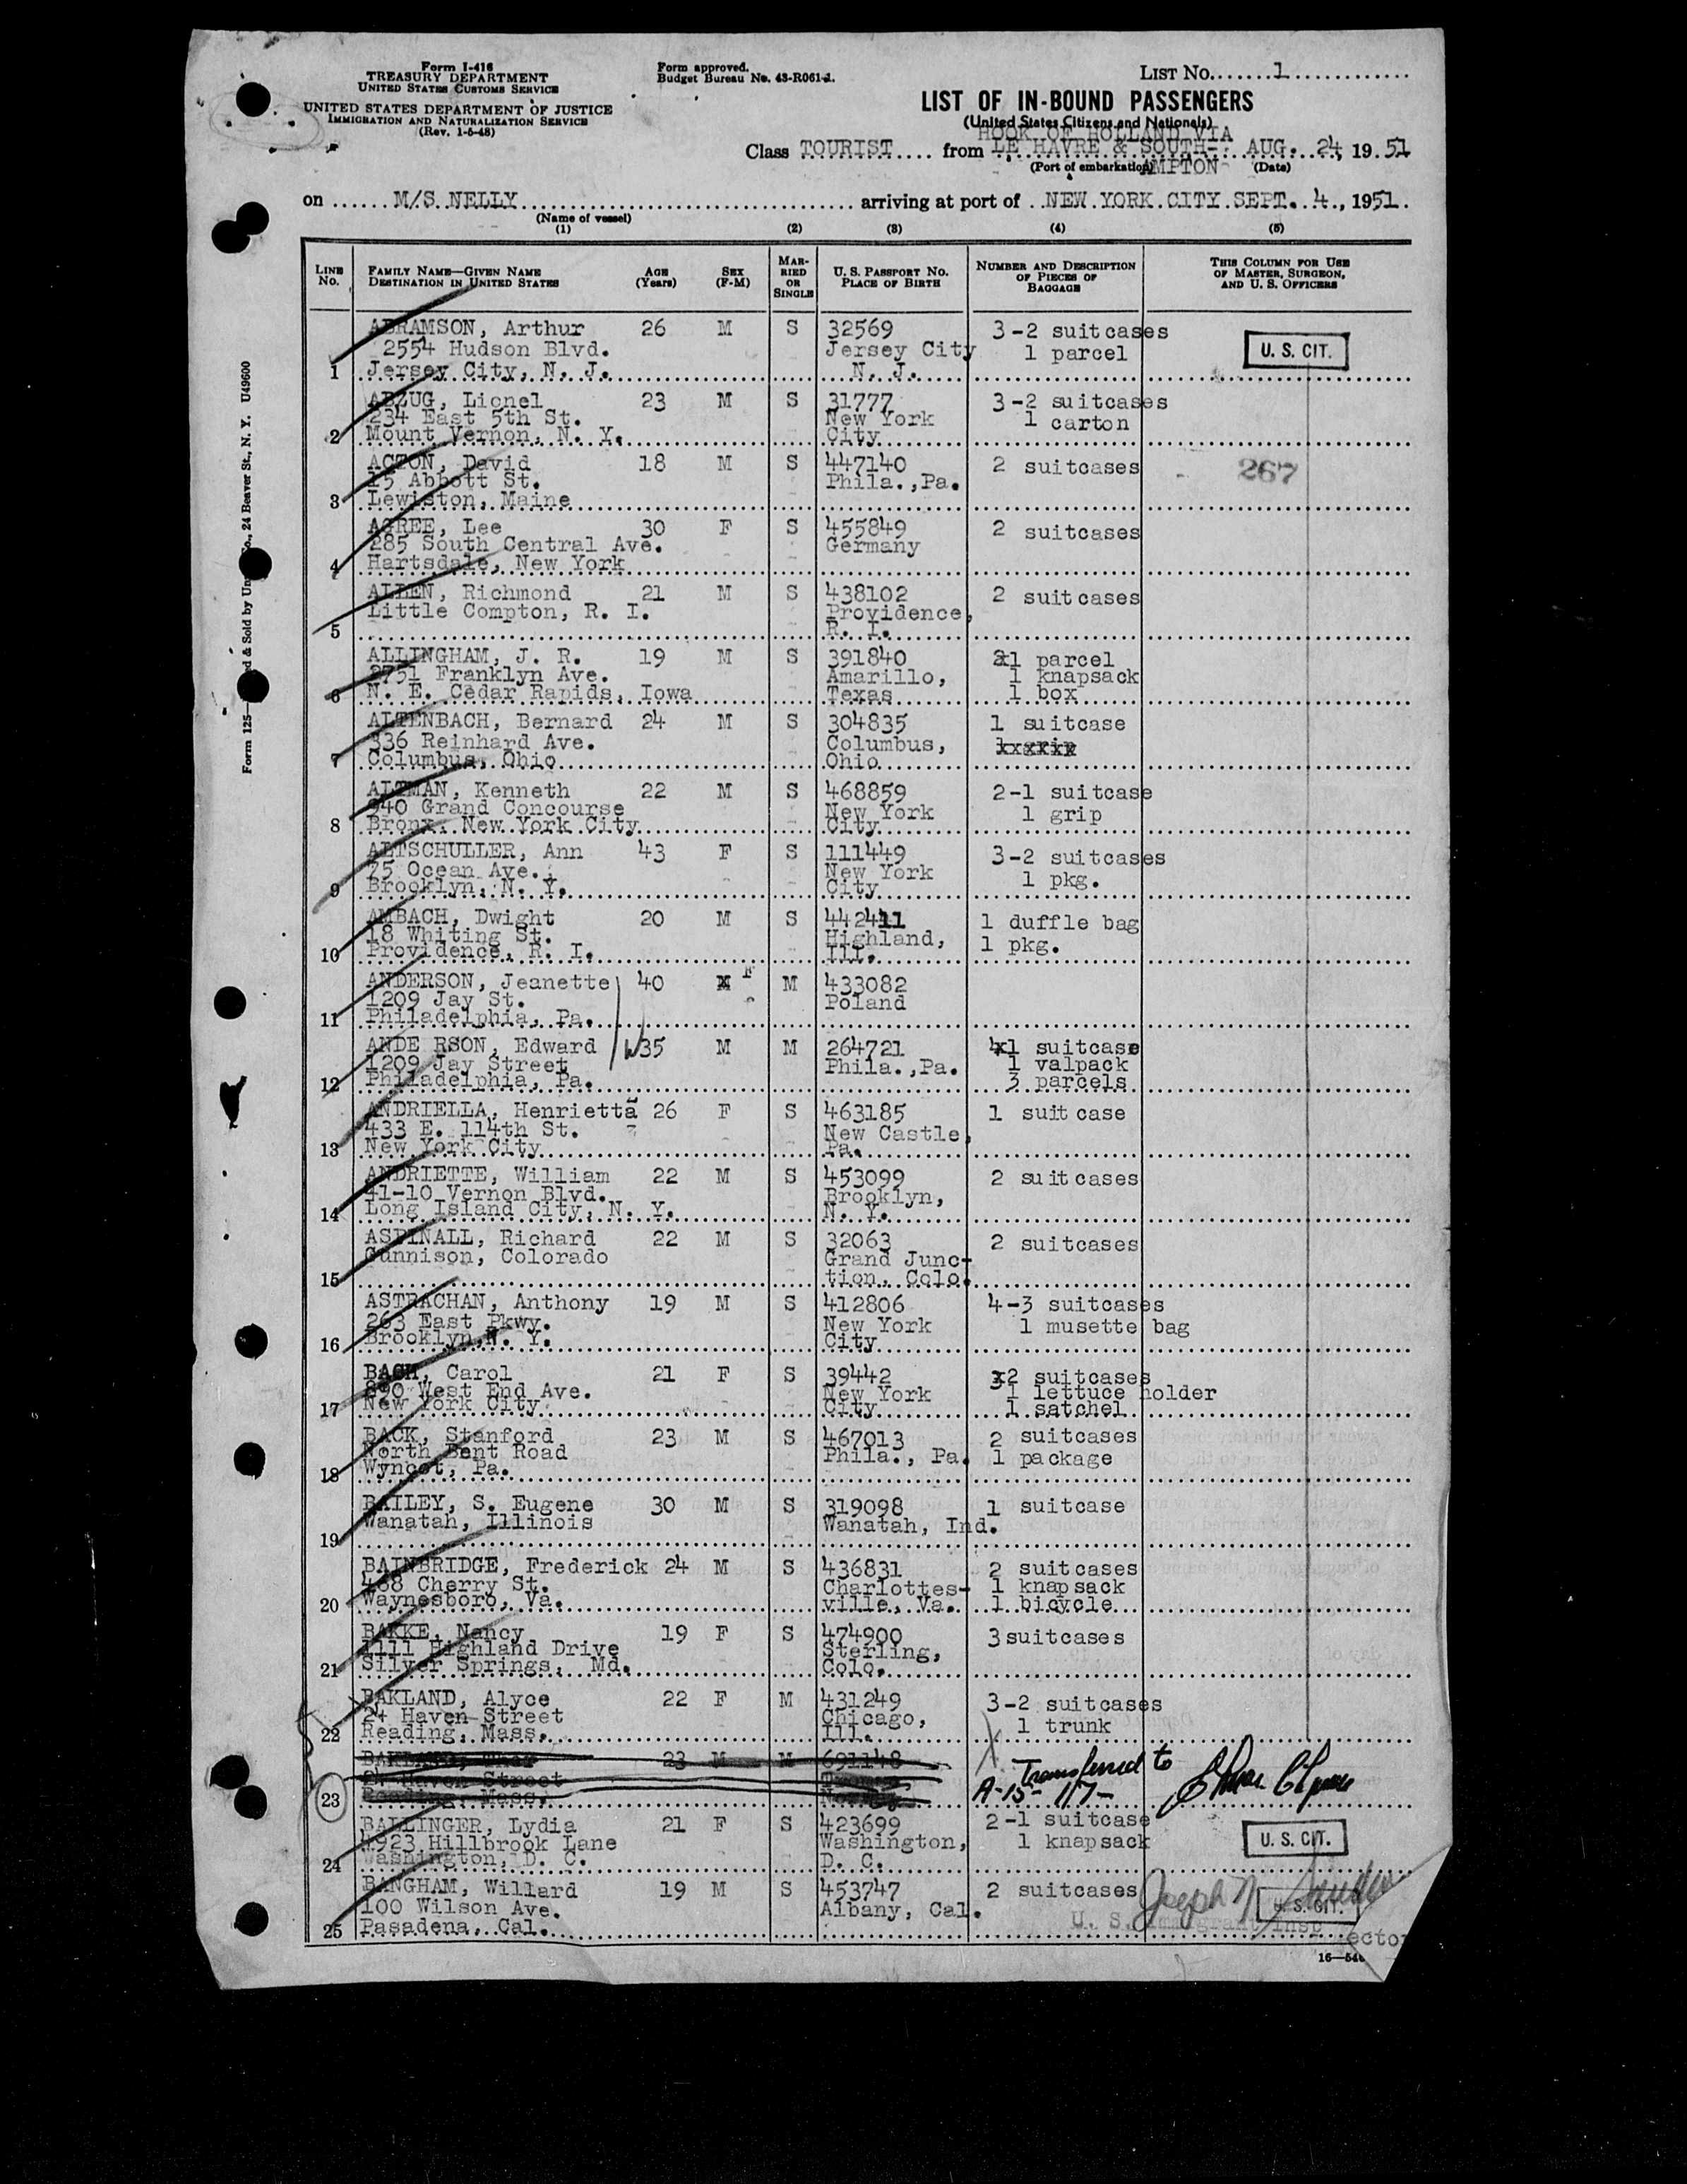 Form I-416
TREASURY DEPARTMENT
UNITED STATES CUSTOMS SERVICE
UNITED STATES DEPARTMENT OF JUSTICE
IMMIGRATION AND NATURALIZATION SERVICE
(Rev. 1-5-48)
Form approved.
Budget Bureau No. 43-R061-1.
LIST No. 1
LIST OF IN-BOUND PASSENGERS
(United States Citizens and Nationals)
HOOK OF HOLLAND VIA
Class TOURIST from LE HAVRE & SOUTH- AUG. 24, 1951
(Port of embarkation) AMPTON (Date)
on M/S NELLY arriving at port of NEW YORK CITY SEPT. 4, 1951.
(Name of vessel)
(1) (2) (3) (4) (5)
LINE No. FAMILY NAME—GIVEN NAME DESTINATION IN UNITED STATES AGE (Years) SEX (F-M) MARRIED OR SINGLE U. S. PASSPORT No. PLACE OF BIRTH NUMBER AND DESCRIPTION OF PIECES OF BAGGAGE THIS COLUMN FOR USE OF MASTER, SURGEON, AND U. S. OFFICERS
ABRAMSON, Arthur 26 M S 32569 3-2 suitcases
2554 Hudson Blvd. Jersey City 1 parcel U. S. CIT.
1 Jersey City, N. J. N. J.
ABZUG, Lionel 23 M S 31777 3-2 suitcases
234 East 5th St. New York 1 carton
2 Mount Vernon, N. Y. City
ACTON, David 18 M S 447140 2 suitcases 267
15 Abbott St. Phila.,Pa.
3 Lewiston, Maine
AGREE, Lee 30 F S 455849 2 suitcases
285 South Central Ave. Germany
4 Hartsdale, New York
ALLEN, Richmond 21 M S 438102 2 suitcases
Little Compton, R. I. Providence,
5 R. I.
ALLINGHAM, J. R. 19 M S 391840 1 parcel
2751 Franklyn Ave. Amarillo, 1 knapsack
6 N. E. Cedar Rapids, Iowa Texas 1 box
ALTENBACH, Bernard 24 M S 304835 1 suitcase
336 Reinhard Ave. Columbus,
7 Columbus, Ohio Ohio
ALTMAN, Kenneth 22 M S 468859 2-1 suitcase
940 Grand Concourse New York 1 grip
8 Bronx, New York City City
ALTSCHULLER, Ann 43 F S 111449 3-2 suitcases
75 Ocean Ave. New York 1 pkg.
9 Brooklyn, N. Y. City
AMBACH, Dwight 20 M S 442411 1 duffle bag
18 Whiting St. Highland, 1 pkg.
10 Providence, R. I. Ill.
ANDERSON, Jeanette 40 F M 433082
1209 Jay St. Poland
11 Philadelphia, Pa.
ANDE RSON, Edward 35 M M 264721 1 suitcase
1209 Jay Street Phila.,Pa. 1 valpack
12 Philadelphia, Pa. 3 parcels
ANDRIELLA, Henrietta 26 F S 463185 1 suitcase
433 E. 114th St. New Castle,
13 New York City Pa.
ANDRIETTE, William 22 M S 453099 2 suitcases
41-10 Vernon Blvd. Brooklyn,
14 Long Island City, N. Y. N. Y.
ASPINALL, Richard 22 M S 32063 2 suitcases
Gunnison, Colorado Grand Junc-
15 tion, Colo.
ASTRACHAN, Anthony 19 M S 412806 4-3 suitcases
263 East Pkwy. New York 1 musette bag
16 Brooklyn,N. Y. City
BACH, Carol 21 F S 39442 2 suitcases
890 West End Ave. New York 1 lettuce holder
17 New York City City 1 satchel
BACK, Stanford 23 M S 467013 2 suitcases
North Bent Road Phila., Pa. 1 package
18 Wyncot, Pa.
BAILEY, S. Eugene 30 M S 319098 1 suitcase
Wanatah, Illinois Wanatah, Ind.
19
BAINBRIDGE, Frederick 24 M S 436831 2 suitcases
468 Cherry St. Charlottes- 1 knapsack
20 Waynesboro, Va. ville, Va. 1 bicycle
BAKKE, Nancy 19 F S 474900 3 suitcases
1111 Highland Drive Sterling,
21 Silver Springs, Md. Colo.
BAKLAND, Alyce 22 F M 431249 3-2 suitcases
24 Haven Street Chicago, 1 trunk
22 Reading, Mass. Ill.
23 M M 691148 Transferred to
24 Haven Street A-15-117-
23 Reading, Mass.
BALLINGER, Lydia 21 F S 423699 2-1 suitcase
4923 Hillbrook Lane Washington, 1 knapsack U. S. CIT.
24 Washington, D. C. D. C.
BANGHAM, Willard 19 M S 453747 2 suitcases Joseph N.
100 Wilson Ave. Albany, Cal. U. S. CIT.
25 Pasadena, Cal. U. S. Immigrant Inspector
Form 125
d & Sold by Un
Co., 24 Beaver St., N. Y. U49600